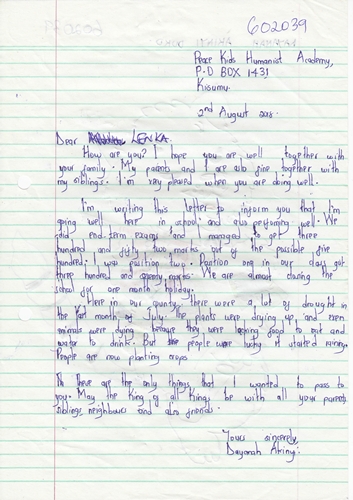 602039
Peace Kids Humanist Academy,
P.O BOX 1431
Kisumu.
2nd August 2018.
Dear LENKA.
How are you? I hope you are well together with
your family. My parents and I are also fine together with
my siblings. I'm very pleased when you are doing well.
I'm writing this letter to inform you that I'm
going well here in school and also performing well. We
did end-term exams and I managed to get three
hundred and fifty two marks out of the possible five
hundred. I was position two. Position one in our class got
three hundred and seventy marks. We are almost closing the
school for one month holiday.
Here in our county there were a lot of drought in
the last month of July. The plants were drying up and even
animals were dying because they were lacking food to eat and
water to drink. But people were lucky it started raining.
People are now planting crops
These are the only things that I wanted to pass to
you. May the King of all Kings be with all your parents,
siblings, neighbours and also friends.
Yours sincerely,
Akinyi.